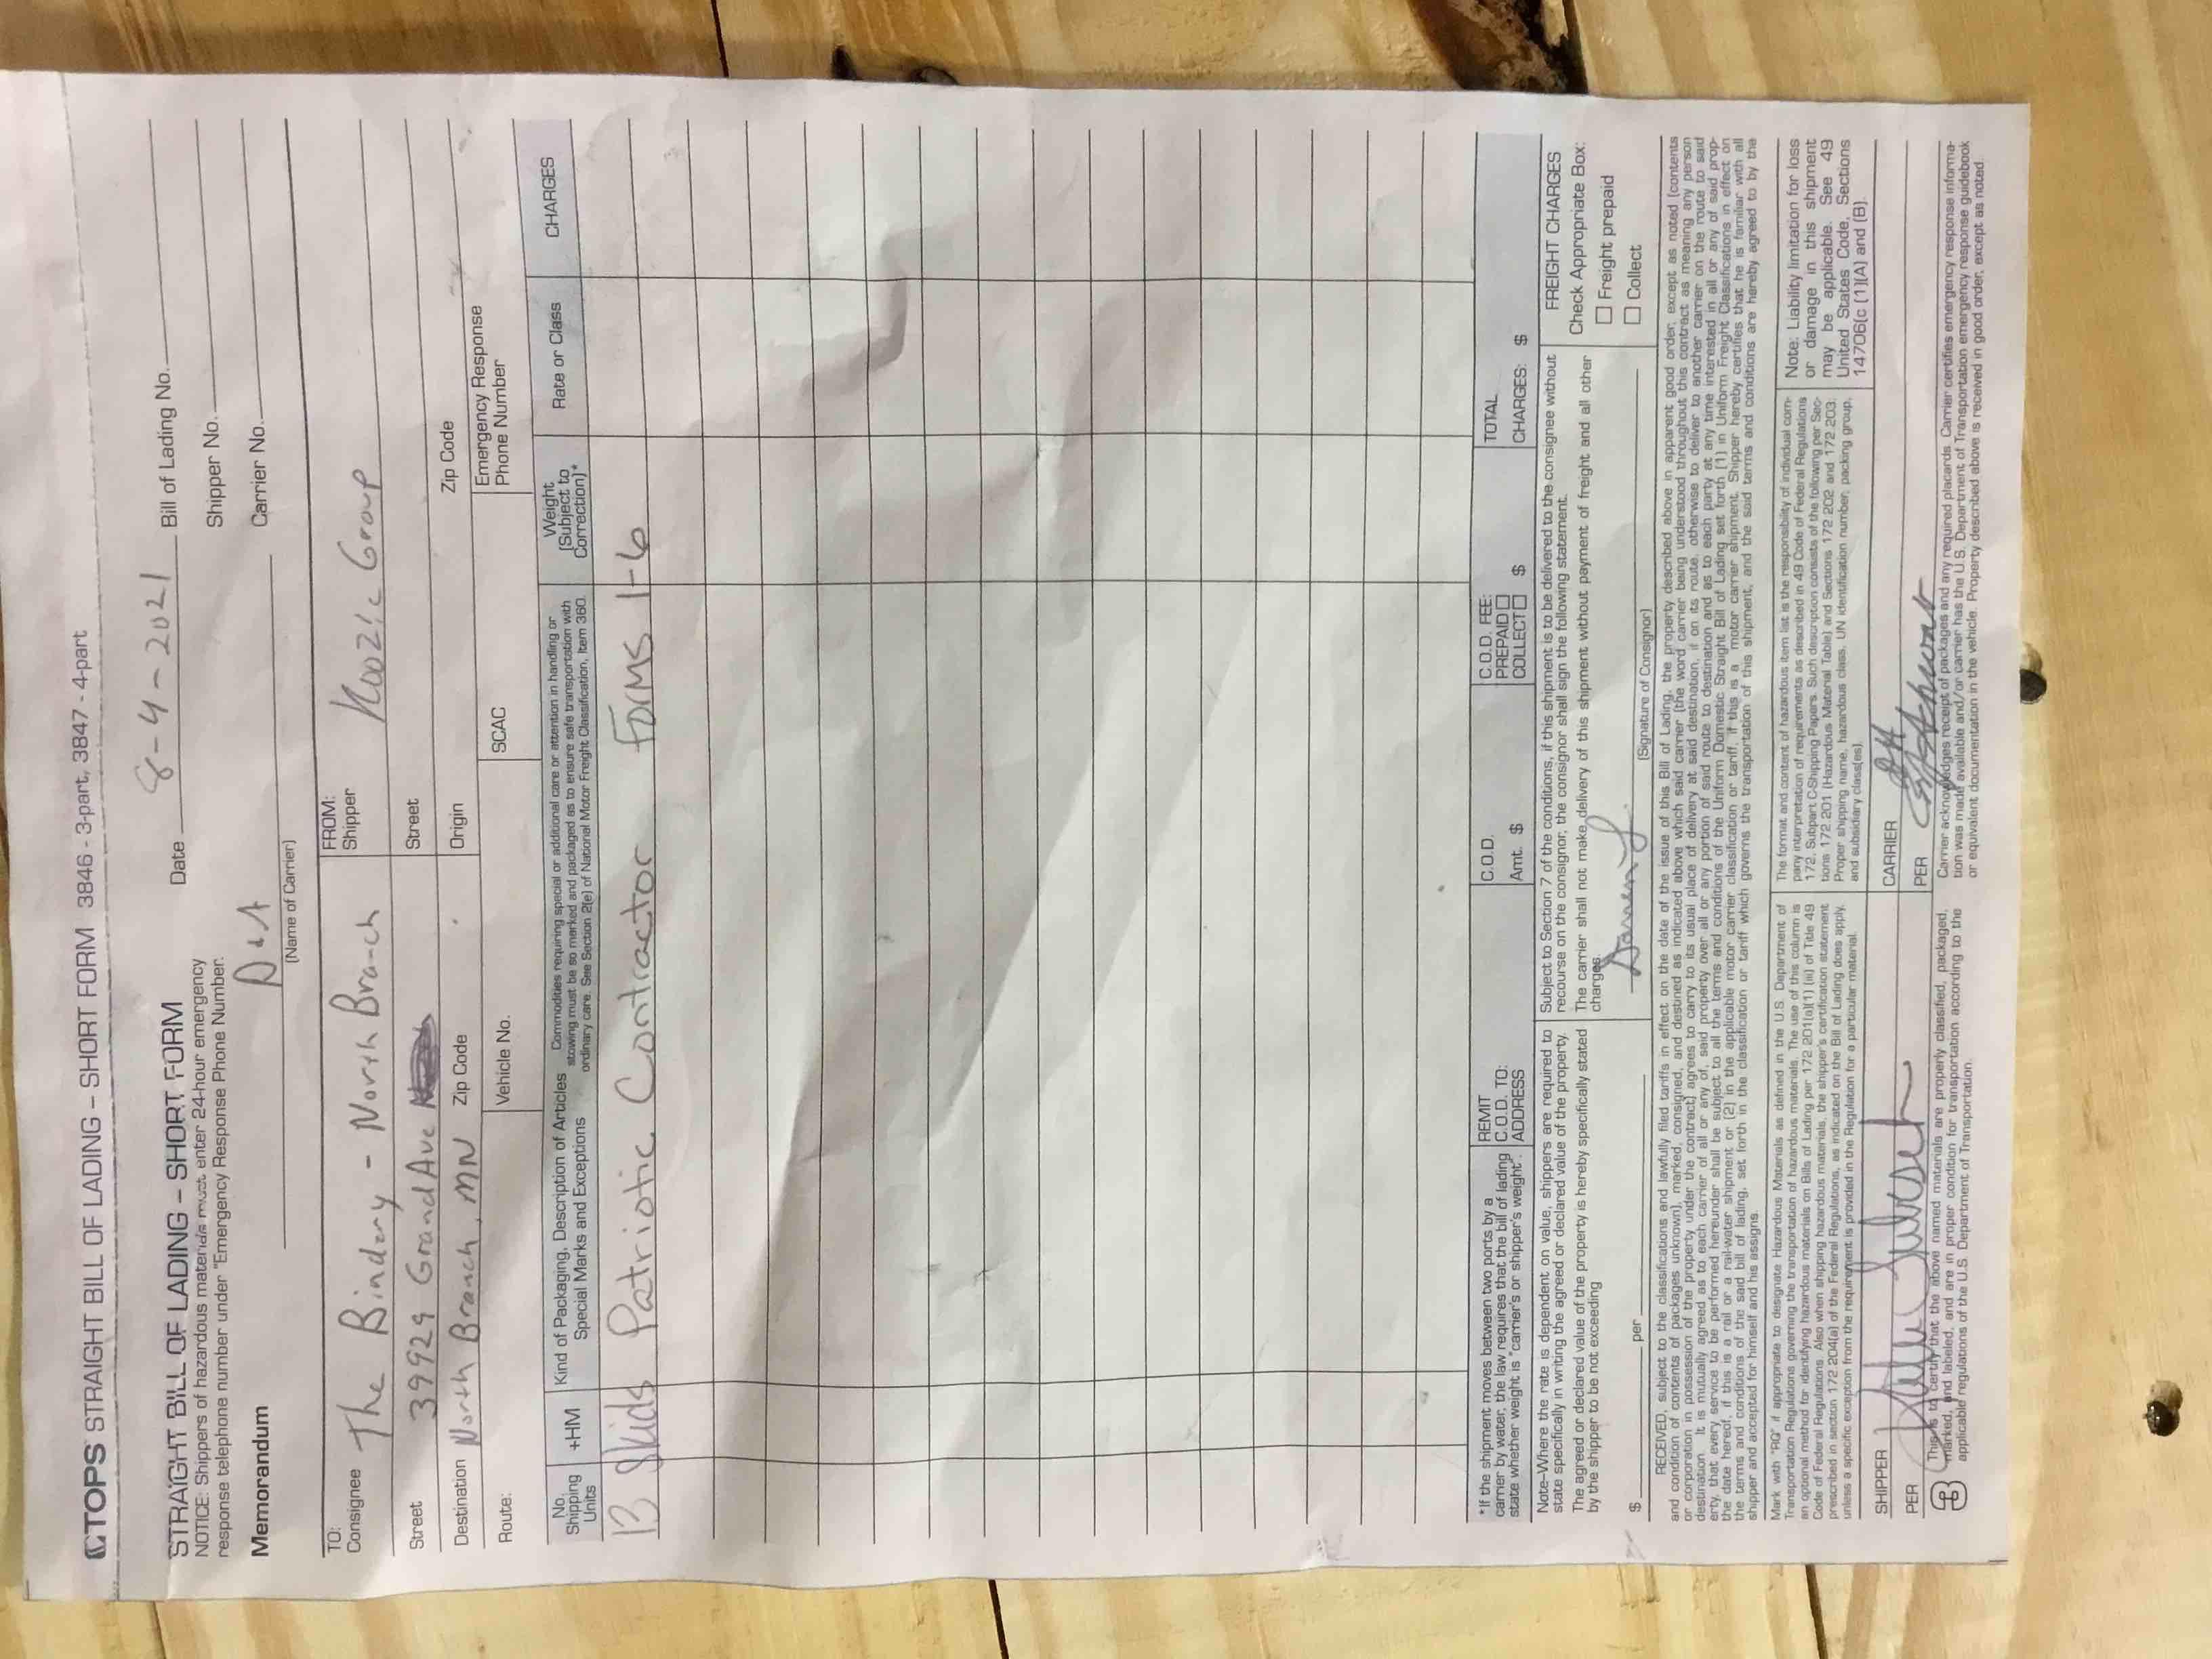 TOPS STRAIGHT BILL OF LADING – SHORT FORM 3846 - 3-part, 3847 - 4-part
STRAIGHT BILL OF LADING – SHORT FORM
NOTICE: Shippers of hazardous materials must enter 24-hour emergency
response telephone number under "Emergency Response Phone Number.
Date 8-4-2021 Bill of Lading No.
Shipper No.
Carrier No.
Memorandum
(Name of Carrier)
TO:
Consignee The Bindery - North Branch
FROM:
Shipper Group
Street 39929 Grand Ave
Street
Destination North Branch, MN Zip Code
Origin Zip Code
Route: Vehicle No. SCAC
Emergency Response
Phone Number
No. Shipping Units
+HM
Kind of Packaging, Description of Articles
Special Marks and Exceptions
Commodities requiring special or additional care or attention in handling or
stowing must be so marked and packaged as to ensure safe transportation with
ordinary care. See Section 2(e) of National Motor Freight Classification, Item 360.
Weight
(Subject to
Correction)*
Rate or Class
CHARGES
13 Skids Patriotic Contractor Forms 1-6
* If the shipment moves between two ports by a
carrier by water, the law requires that the bill of lading
state whether weight is "carrier's or shipper's weight".
REMIT
C.O.D. TO:
ADDRESS
C.O.D.
Amt. $
C.O.D. FEE:
PREPAID
COLLECT $
TOTAL
CHARGES: $
Note–Where the rate is dependent on value, shippers are required to
state specifically in writing the agreed or declared value of the property.
The agreed or declared value of the property is hereby specifically stated
by the shipper to be not exceeding
$ per
Subject to Section 7 of the conditions, if this shipment is to be delivered to the consignee without
recourse on the consignor, the consignor shall sign the following statement.
The carrier shall not make delivery of this shipment without payment of freight and all other
charges.
(Signature of Consignor)
FREIGHT CHARGES
Check Appropriate Box:
Freight prepaid
Collect
RECEIVED, subject to the classifications and lawfully filed tariffs in effect on the date of the issue of this Bill of Lading, the property described above in apparent good order, except as noted (contents
and condition of contents of packages unknown), marked, consigned, and destined as indicated above which said carrier (the word carrier being understood throughout this contract as meaning any person
or corporation in possession of the property under the contract) agrees to carry to its usual place of delivery at said destination, if on its route, otherwise to deliver to another carrier on the route to said
destination. It is mutually agreed as to each carrier of all or any of, said property over all or any portion of said route to destination and as to each party at any time interested in all or any of said prop-
erty, that every service to be performed hereunder shall be subject to all the terms and conditions of the Uniform Domestic Straight Bill of Lading set forth (1) in Uniform Freight Classifications in effect on
the date hereof, if this is a rail or a rail-water shipment or (2) in the applicable motor carrier classification or tariff, if this is a motor carrier shipment. Shipper hereby certifies that he is familiar with all
the terms and conditions of the said bill of lading, set forth in the classification or tariff which governs the transportation of this shipment, and the said terms and conditions are hereby agreed to by the
shipper and accepted for himself and his assigns.
Mark with "RQ" if appropriate to designate Hazardous Materials as defined in the U.S. Department of
Transportation Regulations governing the transportation of hazardous materials. The use of this column is
an optional method for identifying hazardous materials on Bills of Lading per 172.201(a)(1) (iii) of Title 49
Code of Federal Regulations. Also when shipping hazardous materials, the shipper's certification statement
prescribed in section 172.204(a) of the Federal Regulations, as indicated on the Bill of Lading does apply,
unless a specific exception from the requirement is provided in the Regulation for a particular material.
The format and content of hazardous item list is the responsibility of individual com-
pany interpretation of requirements as described in 49 Code of Federal Regulations
172, Subpart C-Shipping Papers. Such description consists of the following per Sec-
tions 172.201 (Hazardous Material Table) and Sections 172.202 and 172.203:
Proper shipping name, hazardous class, UN identification number, packing group,
and subsidiary class(es).
Note: Liability limitation for loss
or damage in this shipment
may be applicable. See 49
United States Code, Sections
14706(c (1)(A) and (B).
SHIPPER
CARRIER
PER
PER
This is to certify that the above named materials are properly classified, packaged,
marked, and labeled, and are in proper condition for transportation according to the
applicable regulations of the U.S. Department of Transportation.
Carrier acknowledges receipt of packages and any required placards. Carrier certifies emergency response informa-
tion was made available and/or carrier has the U.S. Department of Transportation emergency response guidebook
or equivalent documentation in the vehicle. Property described above is received in good order, except as noted